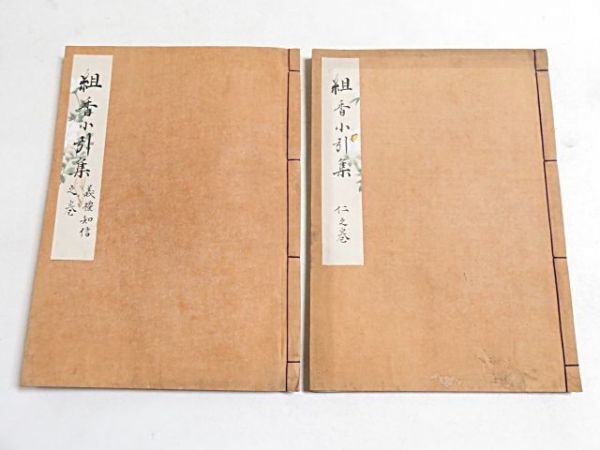 組香小引集
仁之巻
組香小引集
義禮知信
之巻